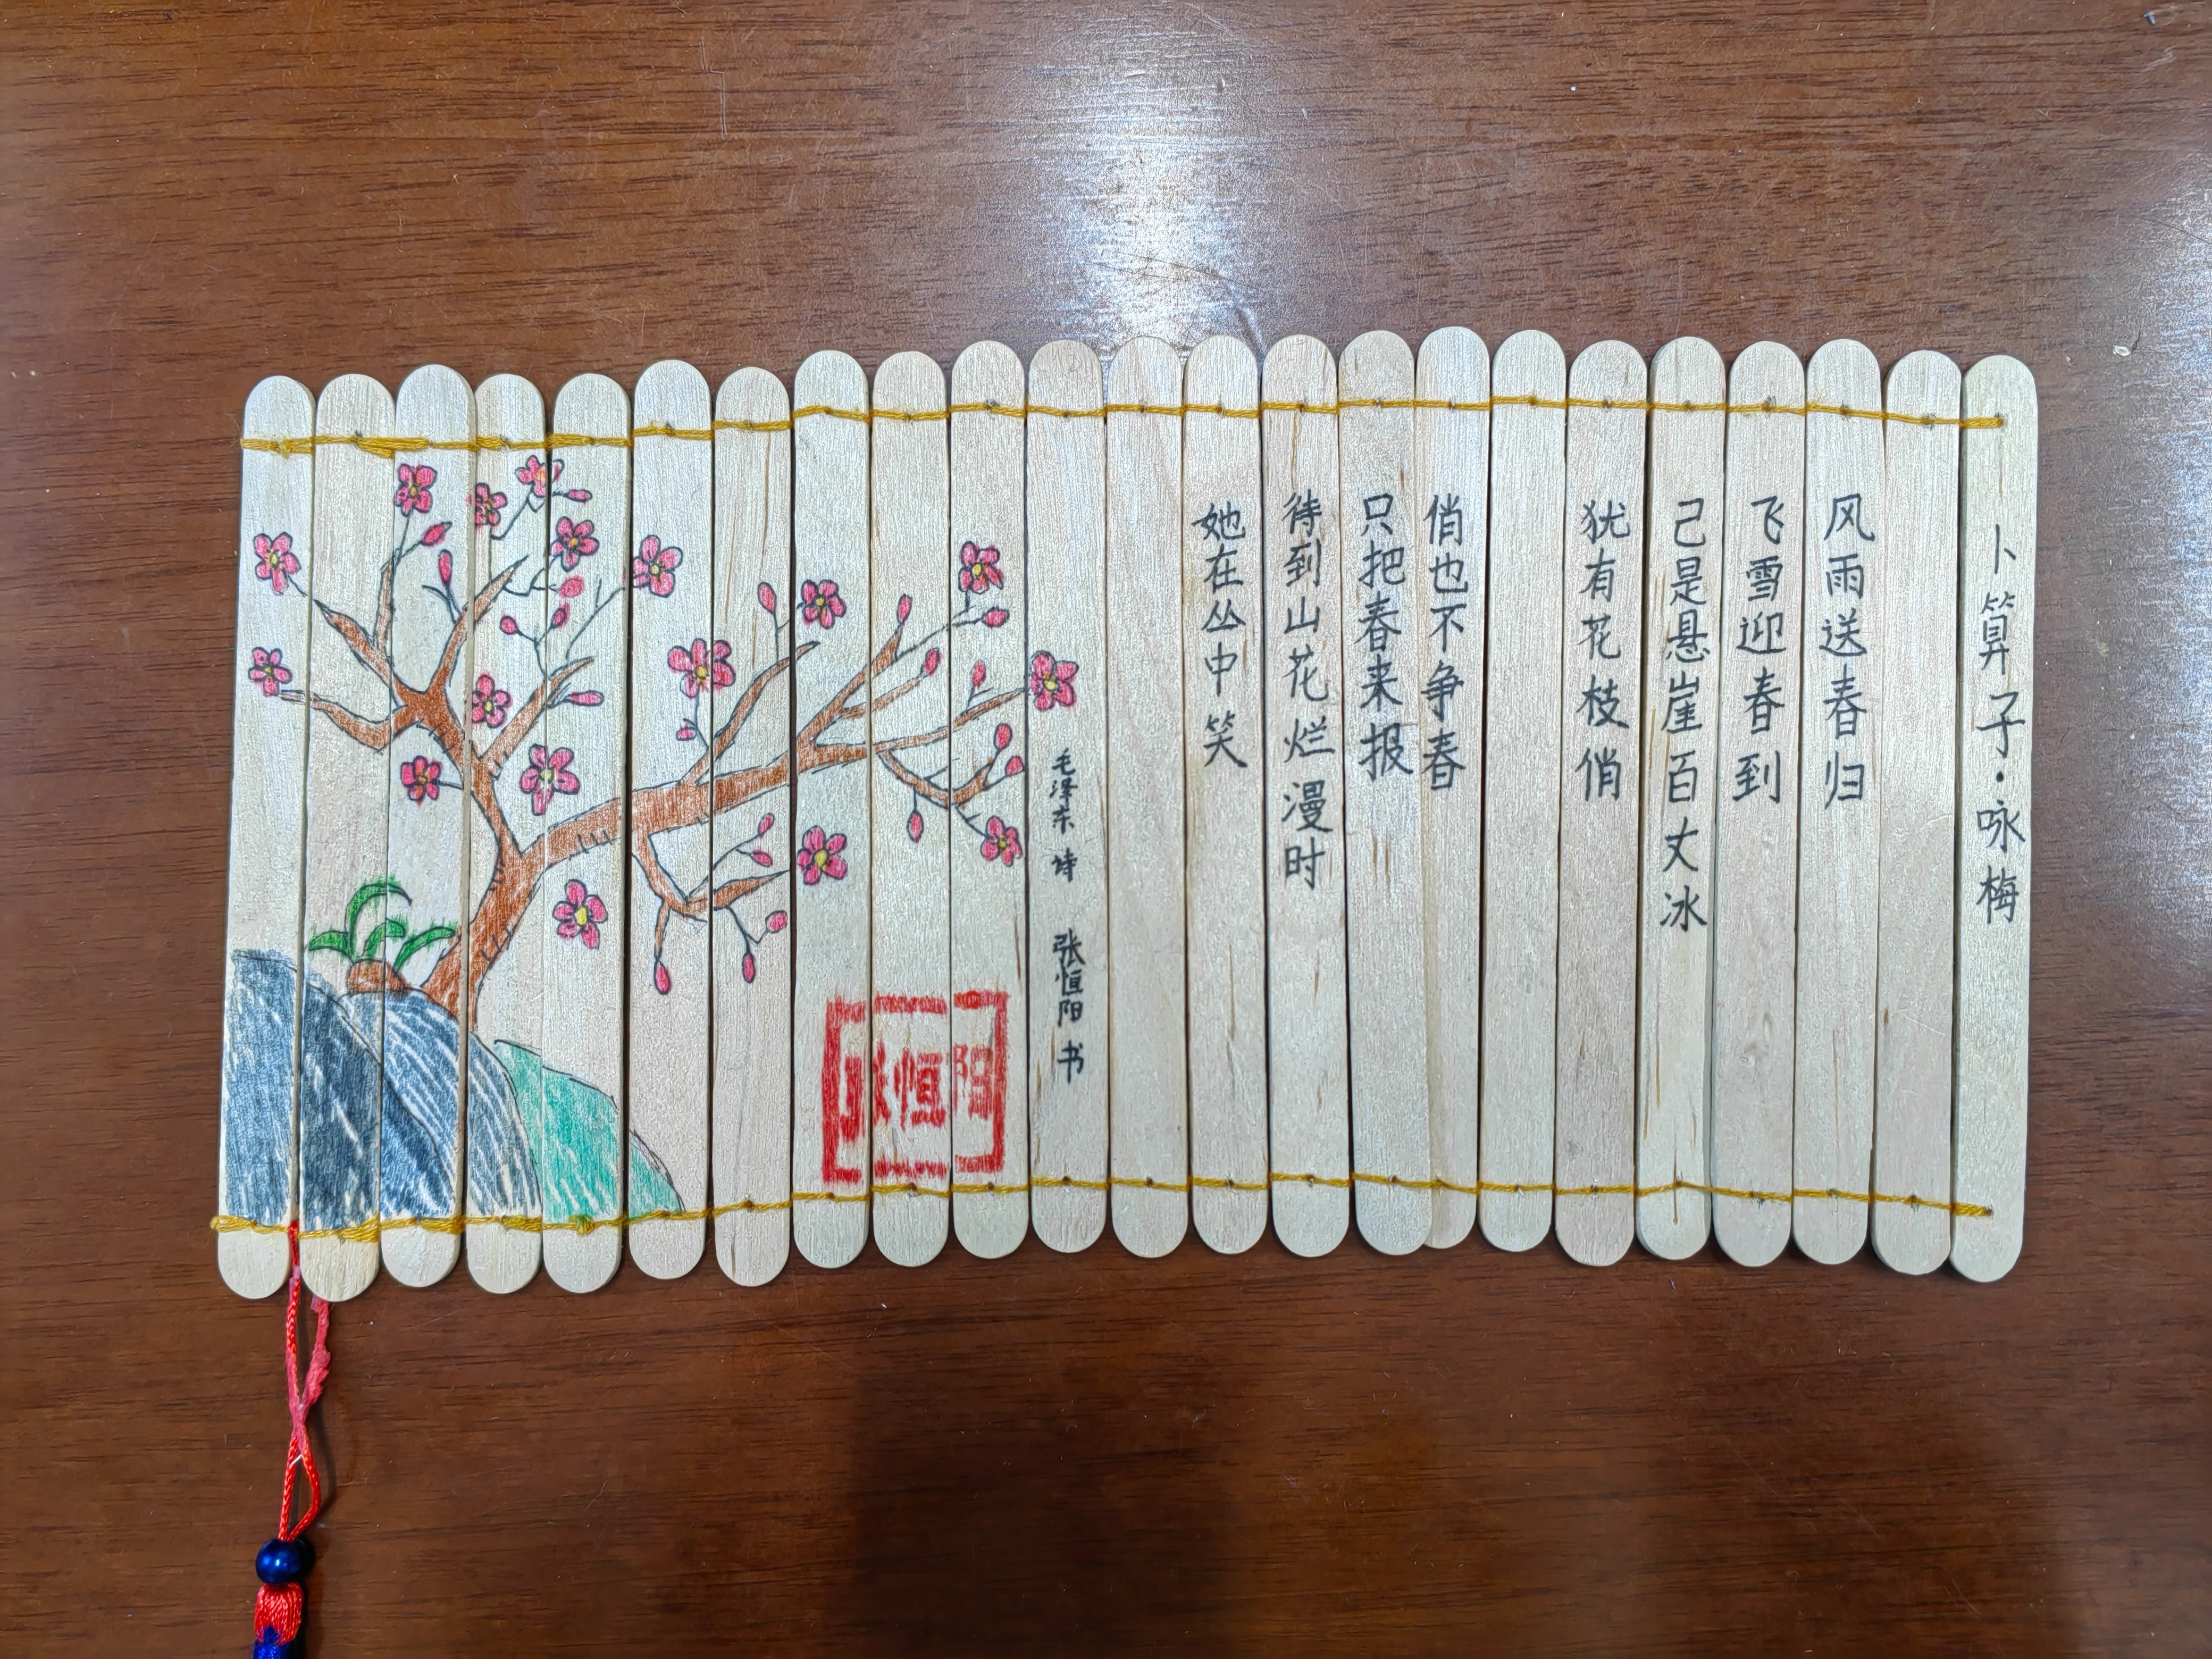 卜算子·咏梅
风雨送春归
飞雪迎春到
己是悬崖百丈冰
犹有花枝俏
俏也不争春
只把春来报
待到山花烂漫时
她在丛中笑
毛泽东 诗 张恒阳 书
张恒阳